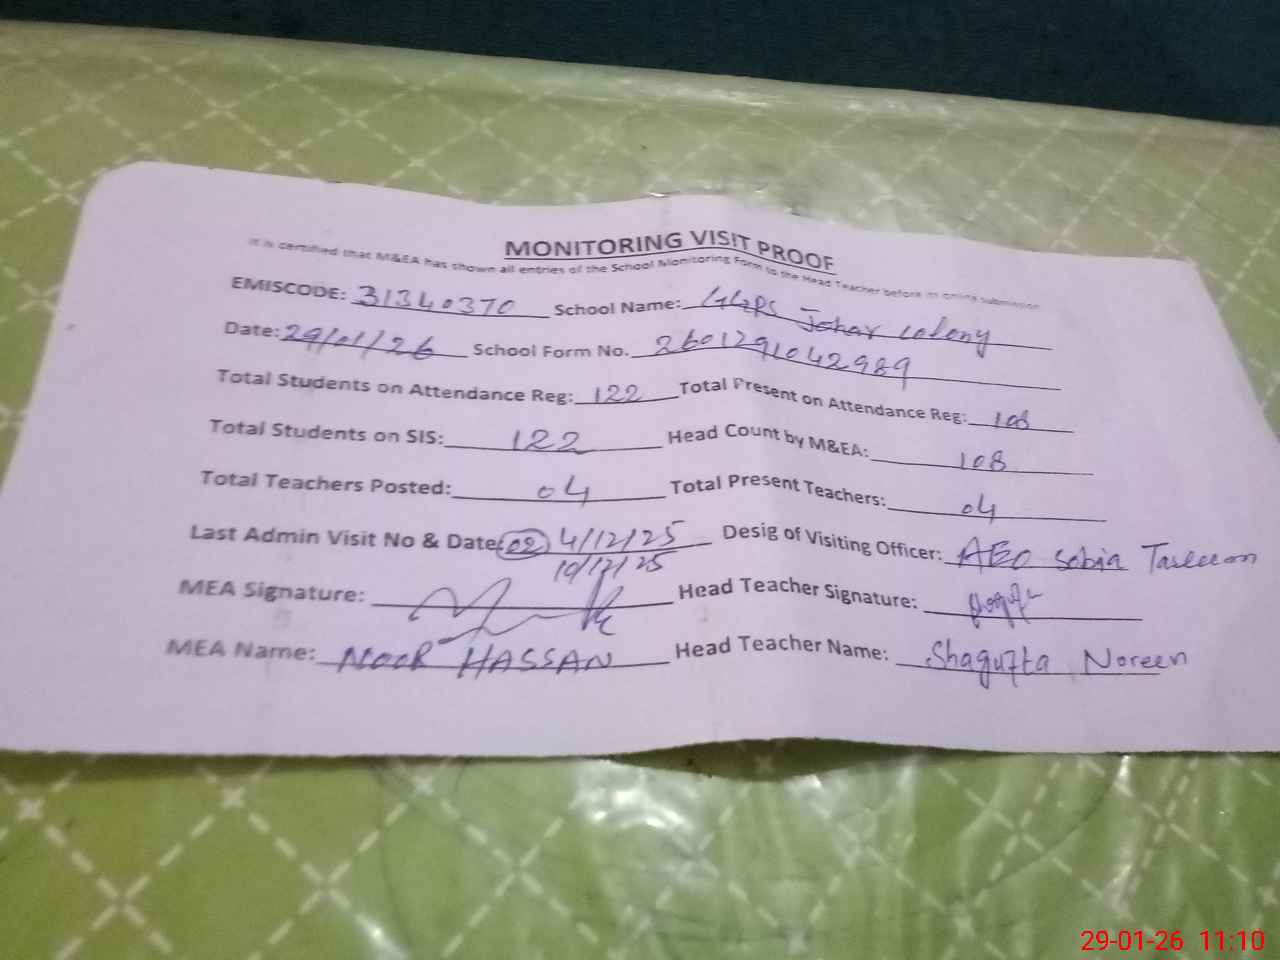 MONITORING VISIT PROOF
It is certified that M&EA has shown all entries of the School Monitoring Form to the Head Teacher before its online submission
EMISCODE: 31340370 School Name: GGPS Johar colony
Date: 29/01/26 School Form No. 2601291042989
Total Students on Attendance Reg: 122 Total Present on Attendance Reg: 108
Total Students on SIS: 122 Head Count by M&EA: 108
Total Teachers Posted: 04 Total Present Teachers: 04
Last Admin Visit No & Date: 02 4/12/25 Desig of Visiting Officer: AEO Sobia
10/12/25
MEA Signature: Head Teacher Signature:
MEA Name: NOOR HASSAN Head Teacher Name: Shagufta Noreen
29-01-26 11:10